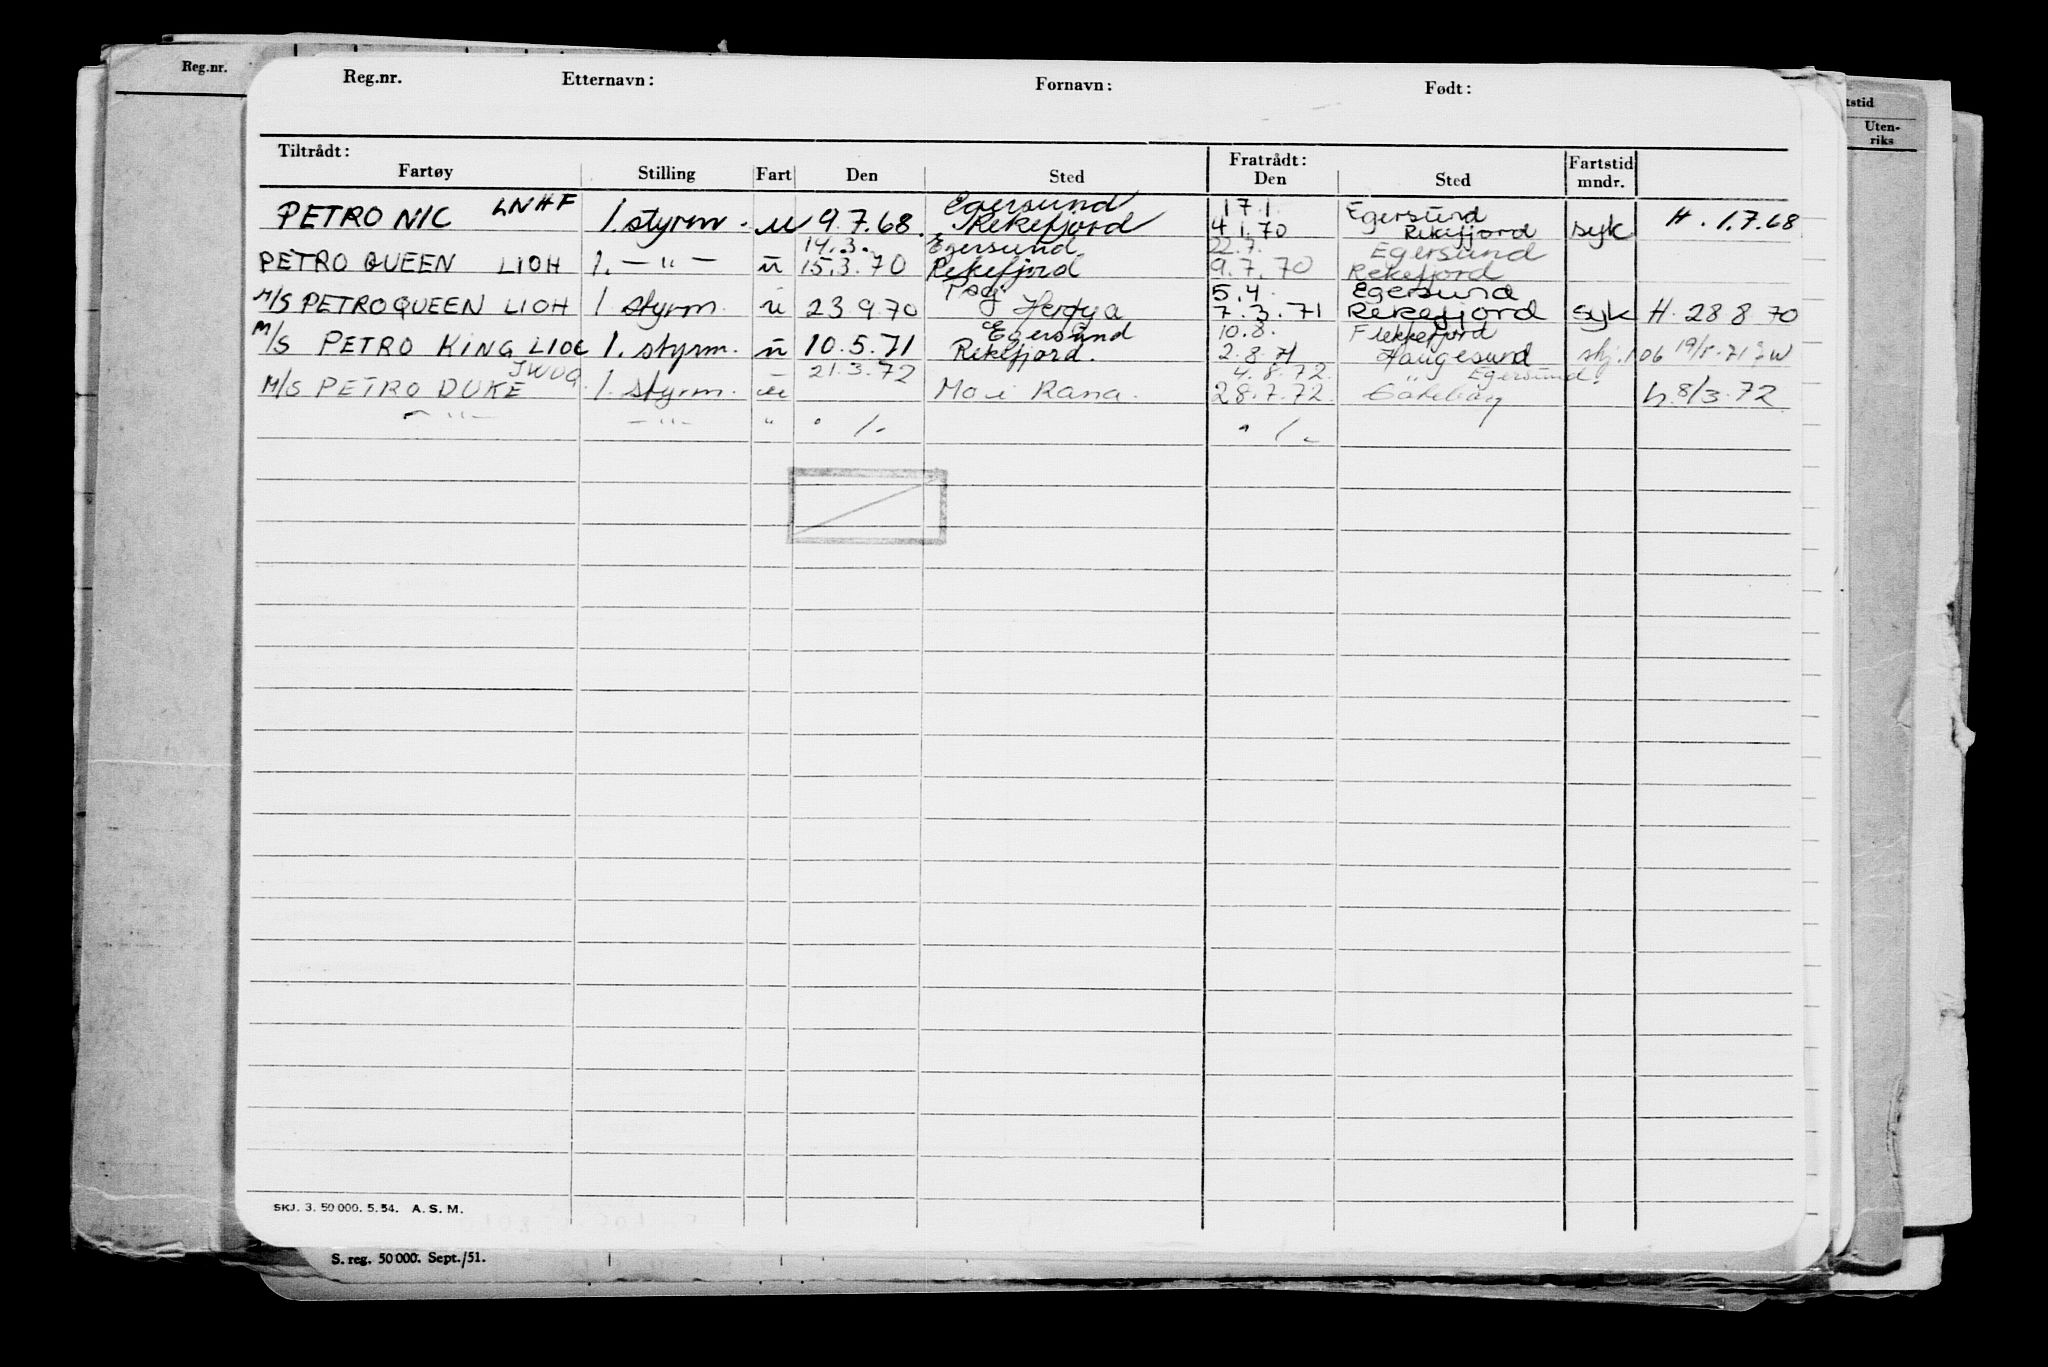 Reg.nr.
Reg.nr. Etternavn: Fornavn: Født:
tstid
Uten-
riks
Tiltrådt: Fratrådt:
Fartøy Stilling Fart Den Sted Den Sted Fartstid mndr.
Egersund 17.1. Egersund
PETRO NIC LNHF 1. styrm. u 9.7.68. Rekefjord 4.1.70 Rekefjord syk H. 1.7.68
14.3. Egersund 22.7. Egersund
PETRO QUEEN LIOH 1. — " — u 15.3.70 Rekefjord 9.7.70 Rekefjord
5.4. Egersund
M/S PETRO QUEEN LIOH 1 styrm. u 23.9.70 Herøya 7.3.71 Rekefjord syk H. 28 8 70
Egersund 10.8. Flekkefjord
M/S PETRO KING LIOE 1. styrm. u 10.5.71 Rekefjord. 2.8.71 Haugesund skj. 106 19/5.71
JWUQ 21.3.72 4.8.72. Egersund.
M/S PETRO DUKE 1. styrm. u Mo i Rana. 28.7.72. Göteborg h. 8/3.72
— " — — " — " ° /. ° /.
SKJ. 3. 50 000. 5. 54. A. S. M.
S. reg. 50 000. Sept./51.